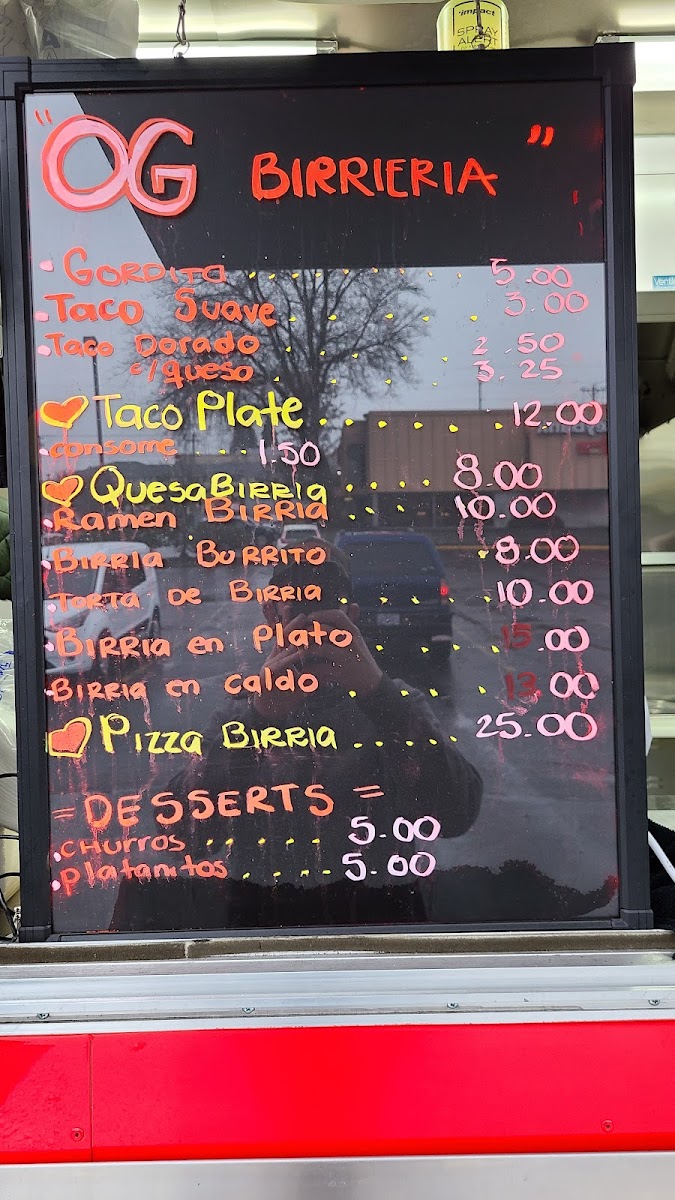 impact
SPRAY
ALERT
"OG BIRRIERIA"
GORDITA ........ 5.00
Taco Suave ..... 3.00
Taco Dorado ..... 2.50
c/queso ..... 3.25
Taco Plate ...... 12.00
consome ... 1.50
QuesaBIRRIA ..... 8.00
Ramen BIRRIA .... 10.00
BIRRIA BURRITO . 8.00
TORTA DE BIRRIA ..... 10.00
BIRRIA en Plato ..... 15.00
BIRRIA en caldo .... 13.00
PIZZA BIRRIA ..... 25.00
= DESSERTS =
CHURROS ...... 5.00
Platanitos ..... 5.00